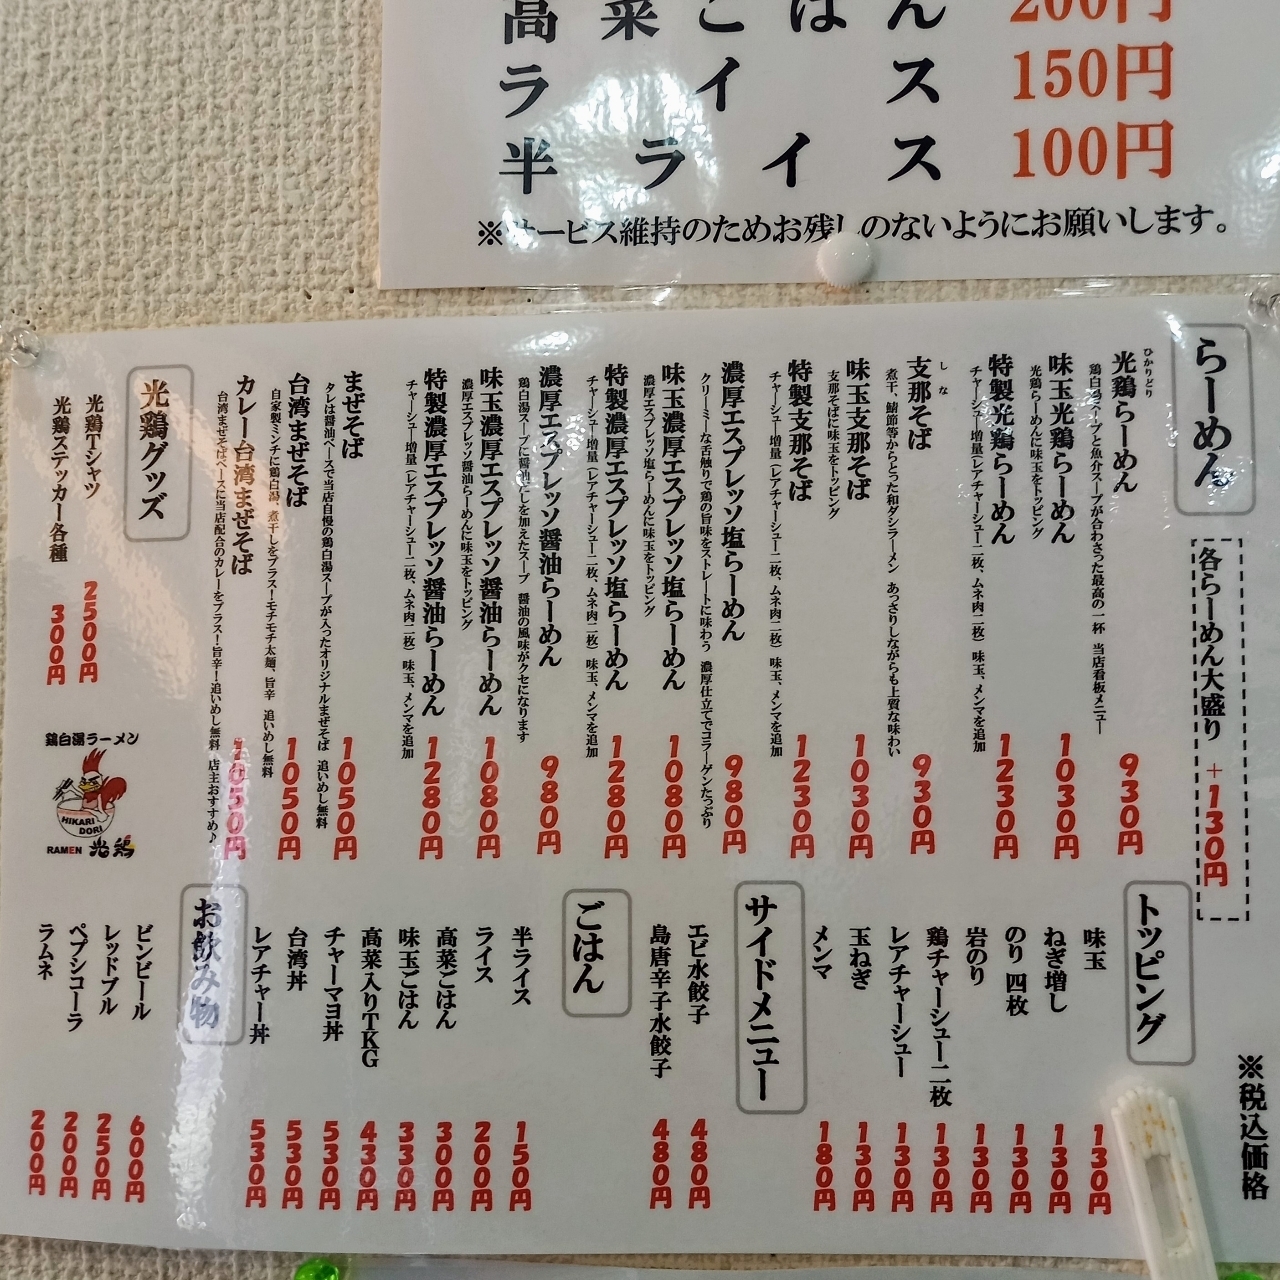 高菜ごはん 200円
ライス 150円
半ライス 100円
※サービス維持のためお残しのないようにお願いします。
らーめん
各らーめん大盛り +130円
ひかりどり
光鶏らーめん 930円
鶏白湯スープと魚介スープが合わさった最高の一杯 当店看板メニュー
味玉光鶏らーめん 1030円
光鶏らーめんに味玉をトッピング
特製光鶏らーめん 1230円
チャーシュー増量(レアチャーシュー二枚、ムネ肉二枚)味玉、メンマを追加
しな
支那そば 930円
煮干、鯖節等からとった和ダシラーメン あっさりしながらも上質な味わい
味玉支那そば 1030円
支那そばに味玉をトッピング
特製支那そば 1230円
チャーシュー増量(レアチャーシュー二枚、ムネ肉二枚)味玉、メンマを追加
濃厚エスプレッソ塩らーめん 980円
クリーミーな舌触りで鶏の旨味をストレートに味わう 濃厚仕立てでコラーゲンたっぷり
味玉濃厚エスプレッソ塩らーめん 1080円
濃厚エスプレッソ塩らーめんに味玉をトッピング
特製濃厚エスプレッソ塩らーめん 1280円
チャーシュー増量(レアチャーシュー二枚、ムネ肉二枚)味玉、メンマを追加
濃厚エスプレッソ醤油らーめん 980円
鶏白湯スープに醤油だしを加えたスープ 醤油の風味がクセになります
味玉濃厚エスプレッソ醤油らーめん 1080円
濃厚エスプレッソ醤油らーめんに味玉をトッピング
特製濃厚エスプレッソ醤油らーめん 1280円
チャーシュー増量(レアチャーシュー二枚、ムネ肉二枚)味玉、メンマを追加
まぜそば 1050円
タレは醤油ベースで当店自慢の鶏白湯スープが入ったオリジナルまぜそば 追いめし無料
台湾まぜそば 1050円
自家製ミンチに鶏白湯、煮干しをプラス!モチモチ太麺、旨辛 追いめし無料
カレー台湾まぜそば 1050円
台湾まぜそばベースに当店配合のカレーをプラス!旨辛!追いめし無料 店主おすすめ♪
光鶏グッズ
光鶏Tシャツ 2500円
光鶏ステッカー各種 300円
鶏白湯ラーメン
HIKARI
DORI
RAMEN 光鶏
※税込価格
トッピング
味玉 130円
ねぎ増し 130円
のり 四枚 130円
岩のり 130円
鶏チャーシュー二枚 130円
レアチャーシュー 130円
玉ねぎ 130円
メンマ 180円
サイドメニュー
エビ水餃子 480円
島唐辛子水餃子 480円
ごはん
半ライス 150円
ライス 200円
高菜ごはん 300円
味玉ごはん 330円
高菜入りTKG 430円
チャーマヨ丼 530円
台湾丼 530円
レアチャー丼 530円
お飲み物
ビンビール 600円
レッドブル 250円
ペプシコーラ 200円
ラムネ 200円